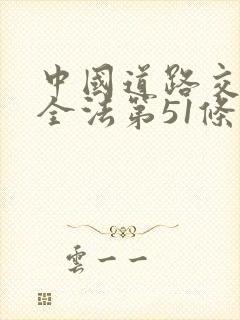 中國道路交
全法第51條
雲一一